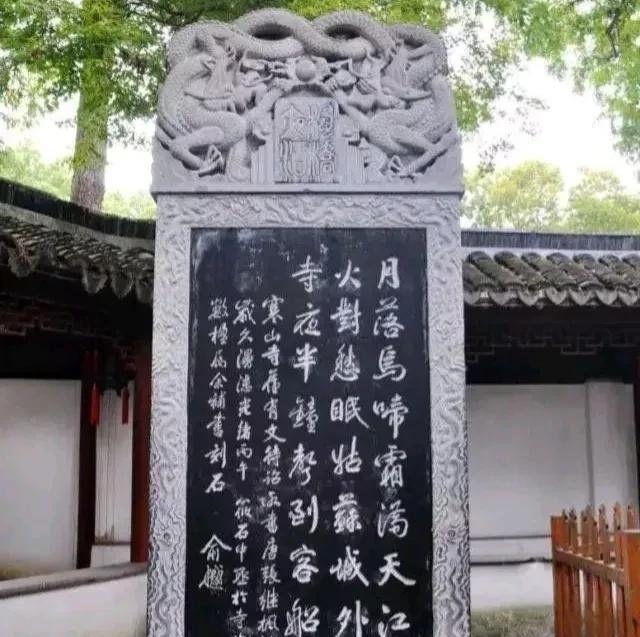 楓橋
夜泊
月落烏啼霜滿天江
火對愁眠姑蘇城外
寺夜半鐘聲到客船
寒山寺舊有文待詔所書唐張繼楓
歲久漫漶光緒丙午筱石中丞於寺
數楹屬余補書刻石 俞樾